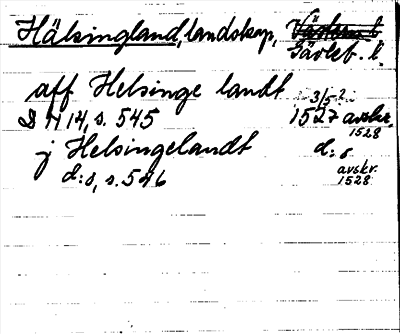 Hälsingland, landskap,
Gävleb. l.
aff Helsinge landt 3/5 ?
H 14, s. 545 1527 avskr. 1528
j Helsingelandt d:o
d:o, s. 546 avskr. 1528